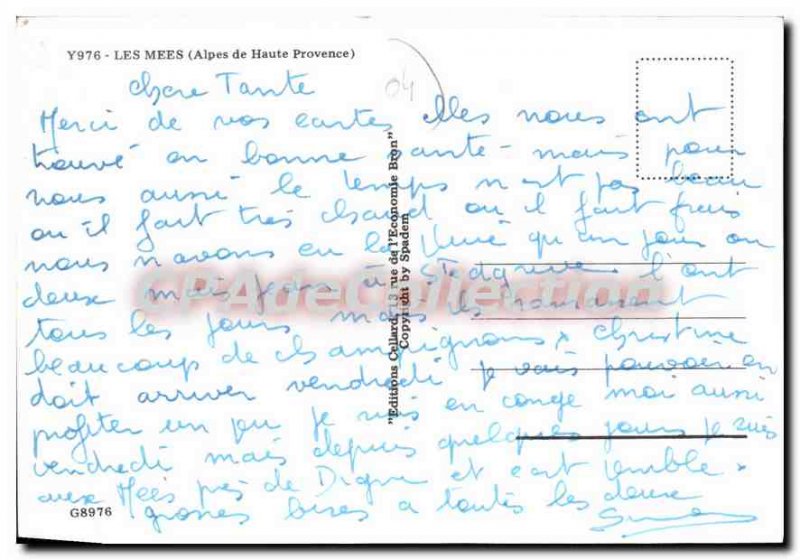 Y976 - LES MEES (Alpes de Haute Provence)
04
chère Tante
Merci de vos cartes elles nous ont
trouvé en bonne santé - mais pour
nous aussi le temps n'est pas beau
ou il fait très chaud ou il fait frais
nous n'avons eu la pluie qu'un jour ou
deux mais Jean à l'ont
tous les jours mais ils ramassent
beaucoup de champignons, christine
doit arriver vendredi je vais pouvoir en
profiter un peu je suis en congé moi aussi
vendredi mais depuis quelques jours je suis
aux Mées près de Digne et c'est
grosses bises a toutes les deux
"Editions Cellard, 13 rue de l'Economie Bron"
Copyright by Spadem
CPAdeCollection
G8976